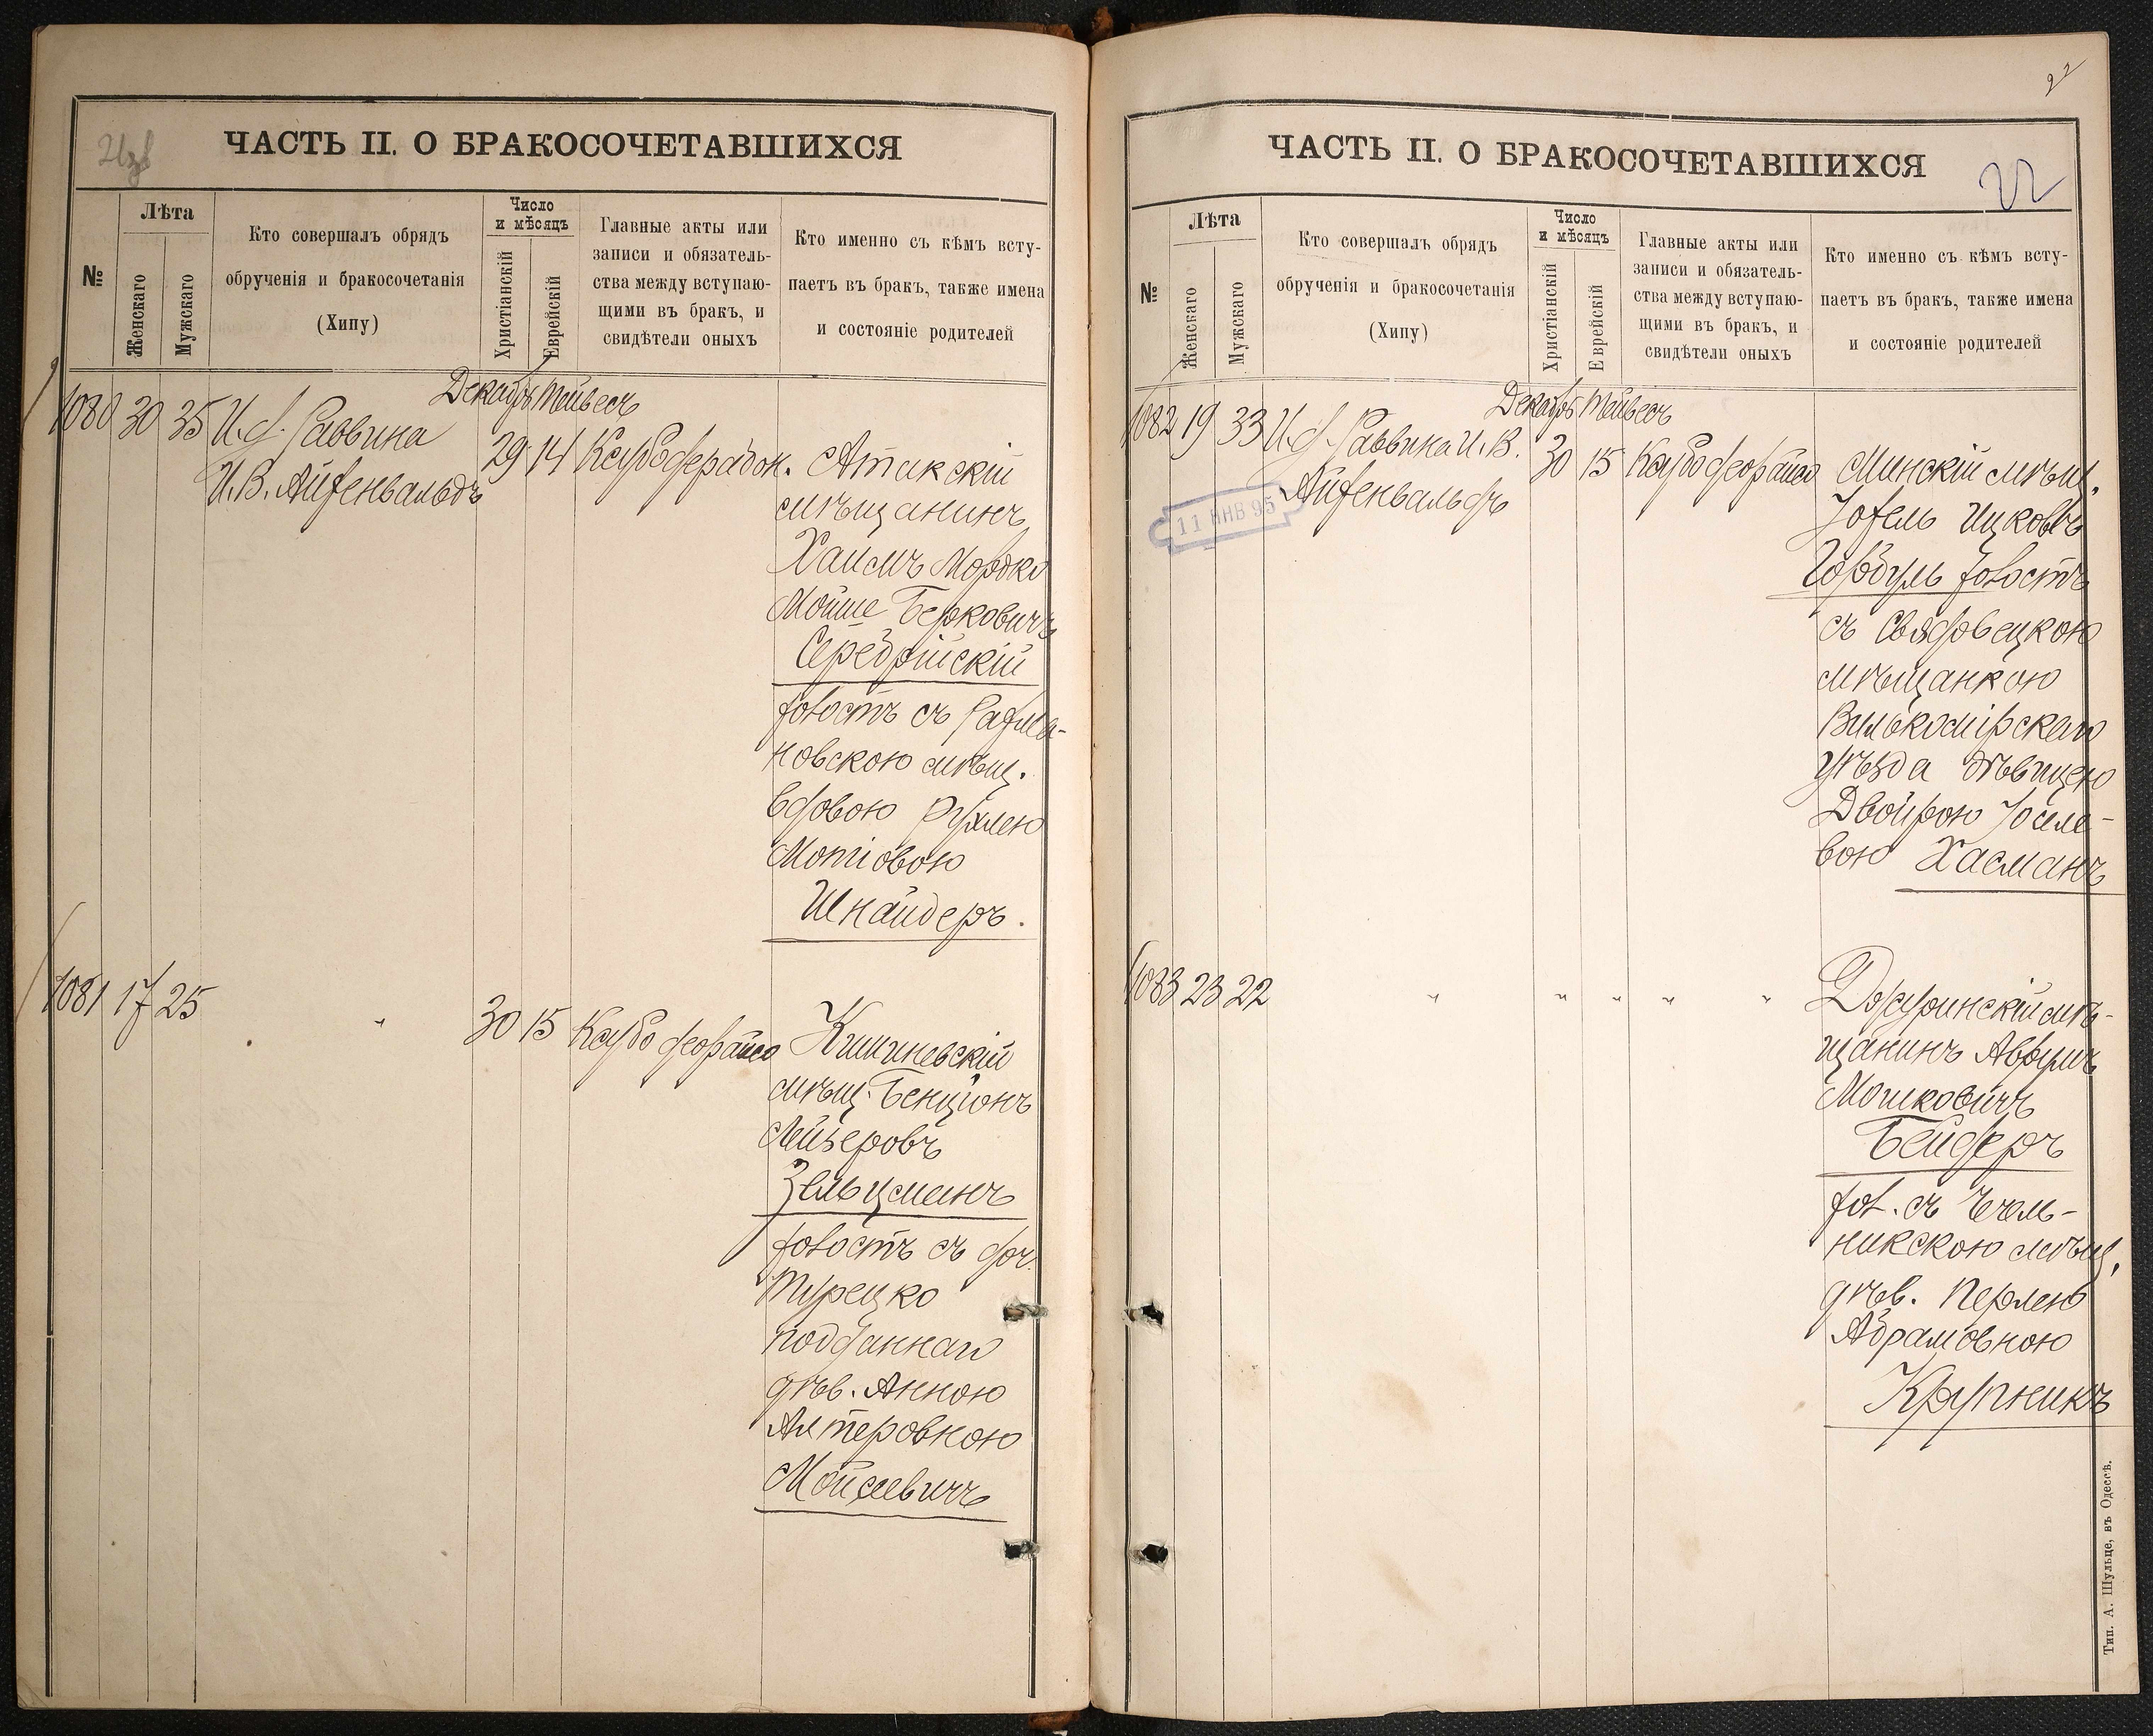 21об
ЧАСТЬ II. О БРАКОСОЧЕТАВШИХСЯ
№
Лѣта
Женскаго
Мужскаго
Кто совершалъ обрядъ
обрученія и бракосочетанія
(Хипу)
Число
и мѣсяцъ
Христіанскій
Еврейскій
Главные акты или
записи и обязатель-
ства между вступаю-
щими въ бракъ, и
свидѣтели оныхъ
Кто именно съ кѣмъ всту-
паетъ въ бракъ, также имена
и состояніе родителей
Декабрь Тейвесъ
1080 30 35 И.д. Раввина
И.В. Айзенвальдъ
29 14
Атакскій
мѣщанинъ
Хаимъ Мордко
Мойше Берковичъ
Серебрійскій
холостъ съ
новскою мѣщ.
вдовою Рухлею
Мотіовою
Шнайдеръ.
1081 17 25 " 30 15
Кишиневскій
мѣщ. Бенціонъ
Лейзеровъ
Зельцманъ
холостъ съ доч.
Турецко
подданнаго
дѣв. Анною
Алтеровною
Мойсеевичъ
22
ЧАСТЬ II. О БРАКОСОЧЕТАВШИХСЯ
22
№
Лѣта
Женскаго
Мужскаго
Кто совершалъ обрядъ
обрученія и бракосочетанія
(Хипу)
Число
и мѣсяцъ
Христіанскій
Еврейскій
Главные акты или
записи и обязатель-
ства между вступаю-
щими въ бракъ, и
свидѣтели оныхъ
Кто именно съ кѣмъ всту-
паетъ въ бракъ, также имена
и состояніе родителей
Декабрь Тейвесъ
1082 19 33 И.д. Раввина И.В.
Айзенвальдъ
11 ЯНВ 95
30 15
Минскій мѣщ.
Іосель Ицковъ
холостъ
съ Свядовецкою
мѣщанкою
Вилькомірскаго
уѣзда дѣвицею
Двойрою Іоселе-
вою Хасманъ
1083 23 22 " " " " "
Джуринскій мѣ-
щанинъ Аврумъ
Мошковичъ
Бейдеръ
хол. съ Хмель-
никскою мѣщ.
дѣв. Перлею
Абрамовною
Крупникъ
Тип. А. Шульце, въ Одессѣ.